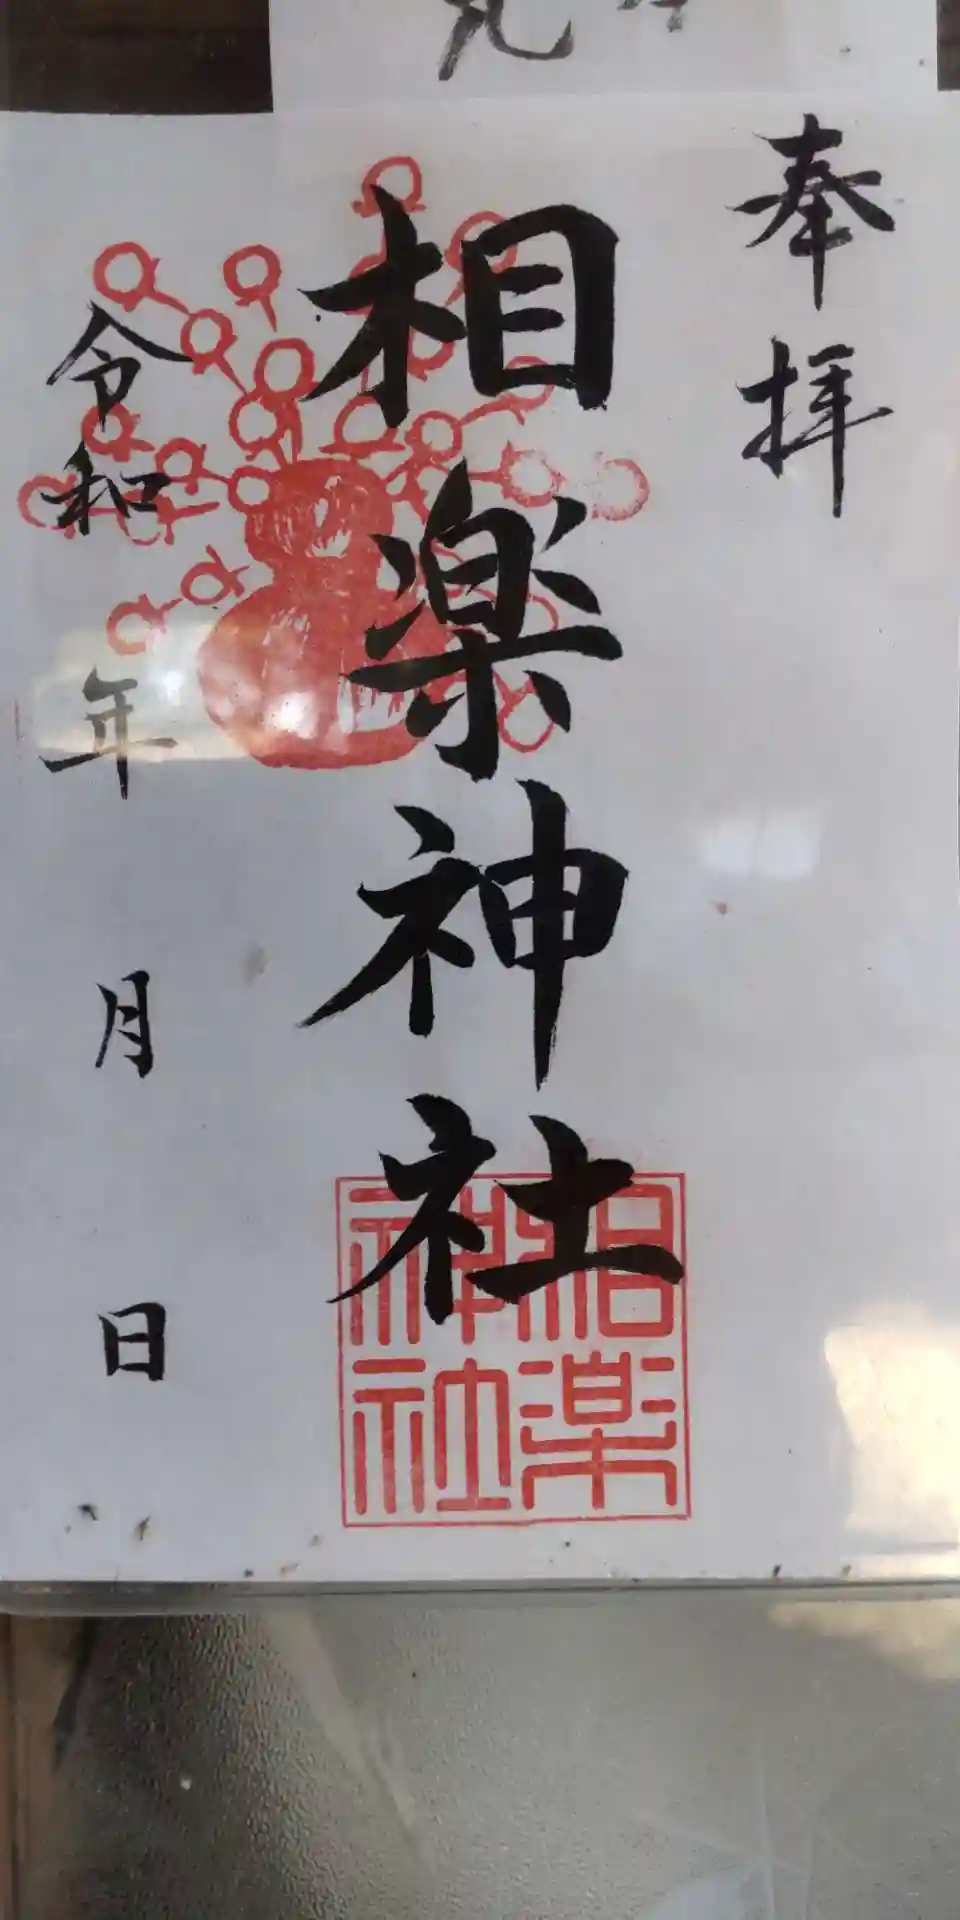 奉拝
相楽神社
相楽神社
令和 年 月 日